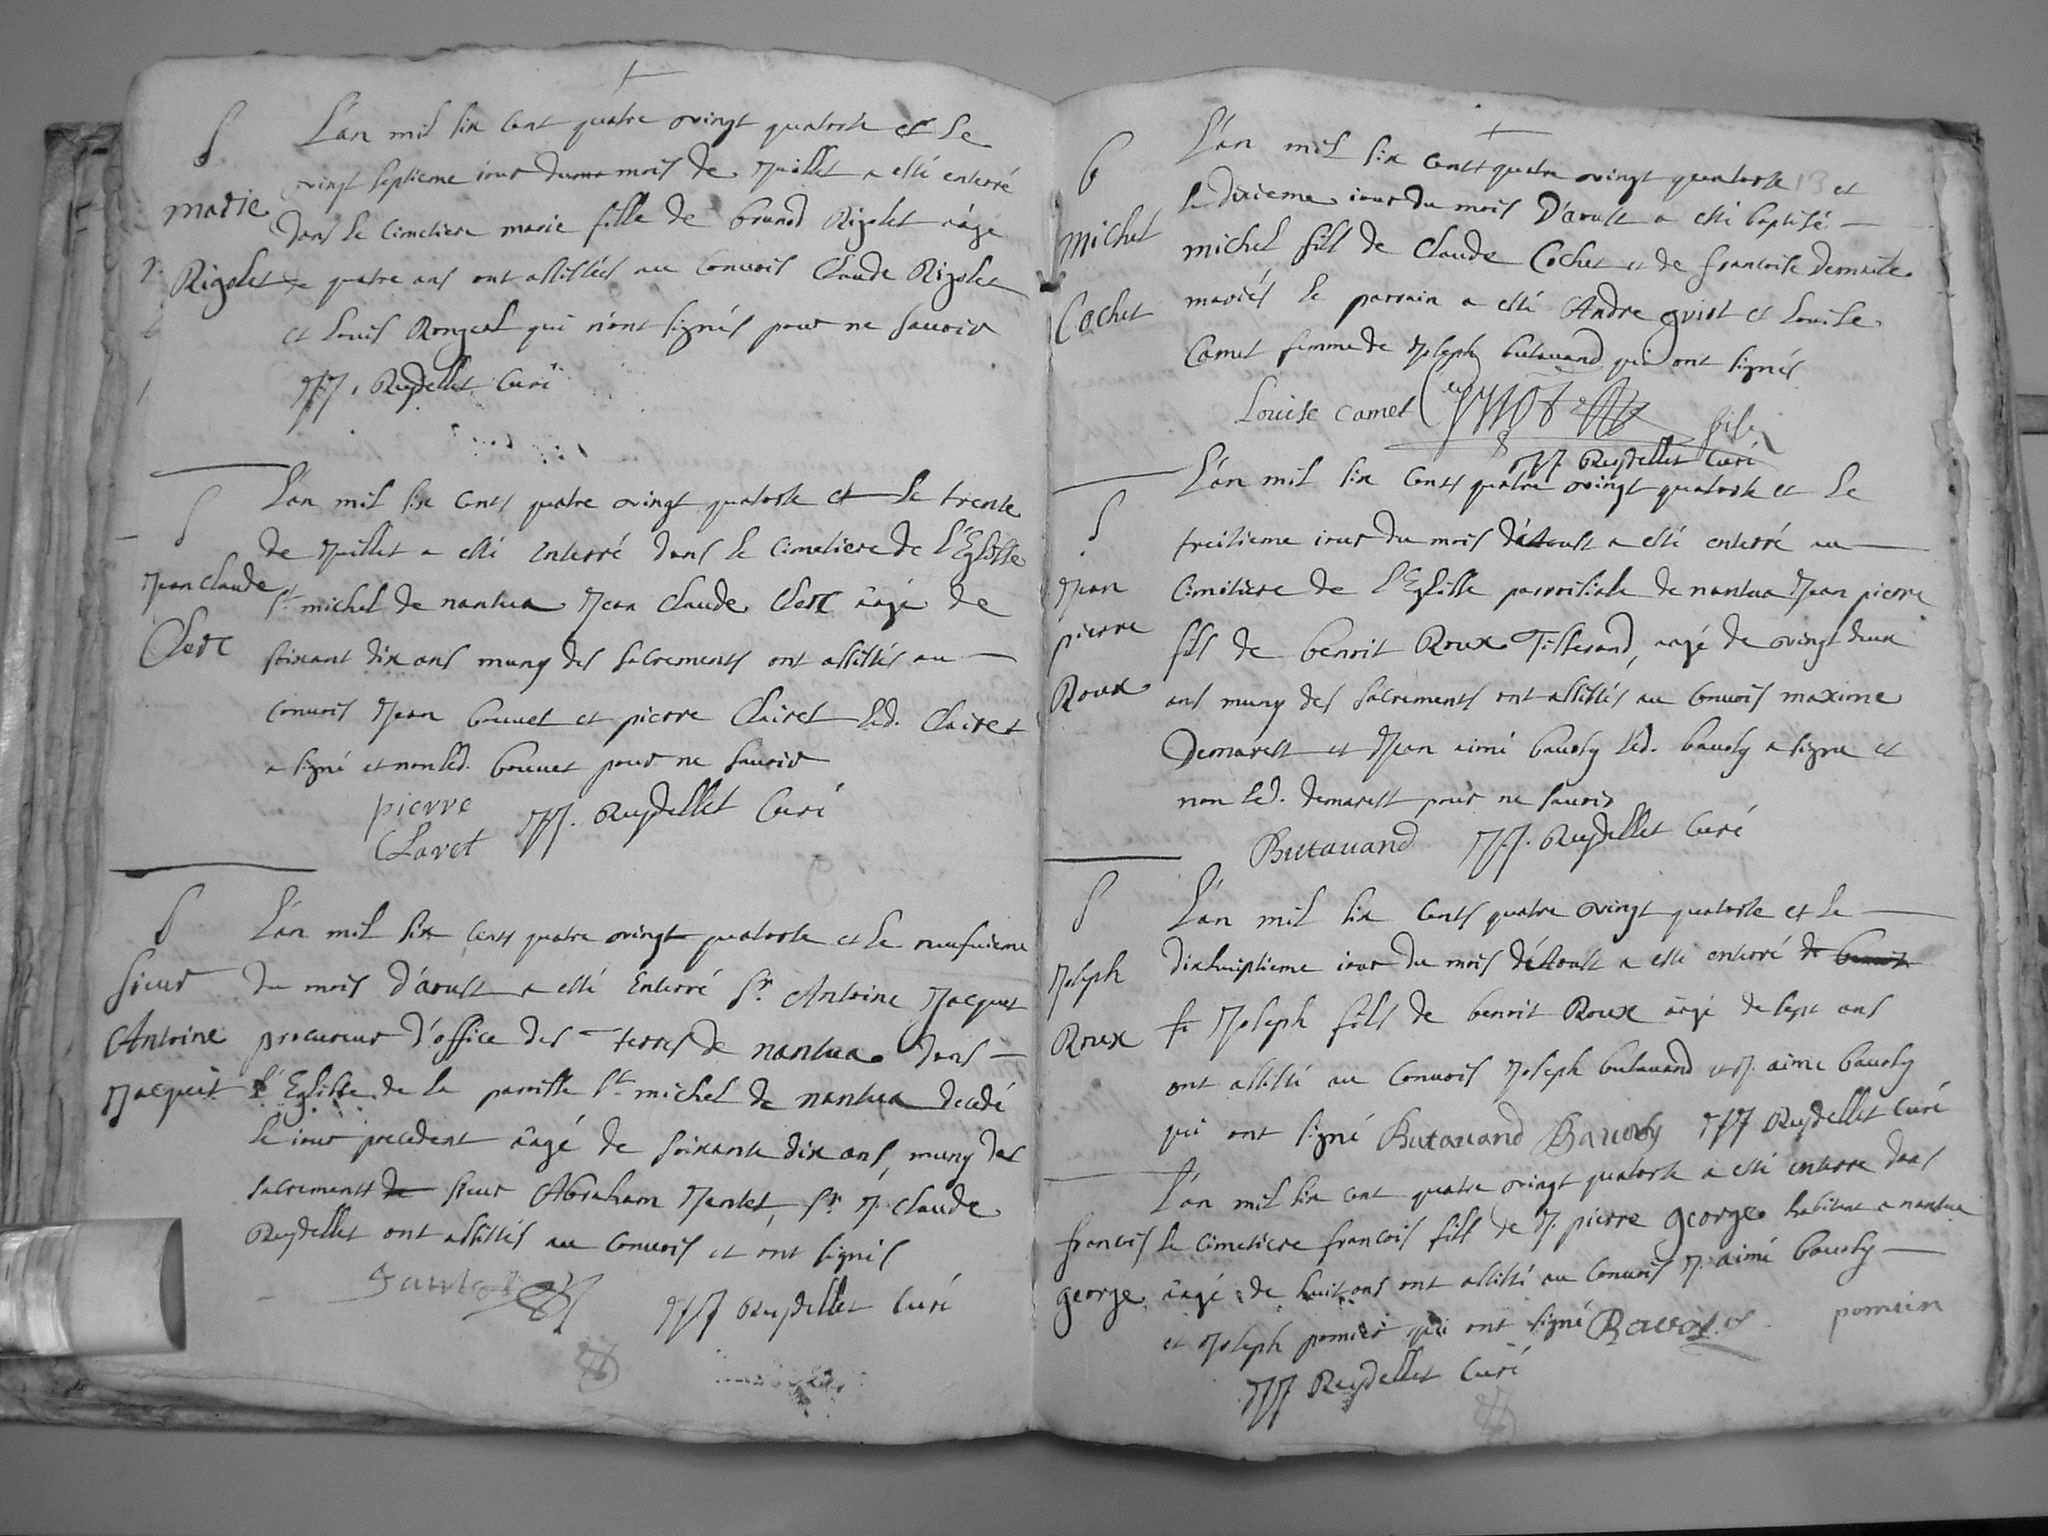 S
L'an mil six cent quatre vingt quatorse et le
vingt septieme iour du mois de Juillet a esté enterré
marie
dans le Cimetiere marie fille de Rigolet aagé
Rigolet
de quatre ans ont assistés au Convois Claude Rigolet
et Louis qui n'ont signés pour ne sauoir
Reydellet Curé
S
L'an mil six cents quatre vingt quatorse et le trente
de Juillet a esté enterré dans le Cimetiere de l'Eglisse
Jean Claude
St michel de nantua Jean Claude Clerc aagé de
Clerc
soixant dix ans muny des sacrements ont assistés au
convois Jean bouuet et pierre Clairet led. Clairet
a signé et non led. bouuet pour ne sauoir
pierre
Clavet
Reydellet Curé
S
L'an mil six cents quatre vingt quatorse et le neufuieme
sieur
du mois d'aoust a esté Enterré Sr. Antoine Jacquet
Antoine
procureur d'office des terres de nantua dans
Jacquet
l'Eglisse de la paroisse St michel de nantua decedé
le iour precedent aagé de soixante dix ans, muny des
sacrements sieur Abraham Sr J. Claude
Reydellet ont assistés au Conuois et ont signés
Reydellet Curé
b
L'an mil six cents quatre vingt quatorse 13 et
le dixieme iour du mois D'aoust a esté baptisé
michel
michel fils de Claude Cochet et de francoise Demaite
Cochet
mariés le parrain a esté Andre guiot et Louise
Camet femme de Joseph butauand qui ont signés
Louise camet guiot
Reydellet Curé
S
L'an mil six cents quatre vingt quatorse et le
treisieme iour du mois d'Aoust a esté enterré au
Jean
Cimitiere de l'Eglisse parroissiale de nantua Jean pierre
pierre
fils de benoit Roux Tisserand, aagé de vingt deux
Roux
ans muny des sacrements ont assistés au Conuois maxime
Demarest et Jean aimé bauoly led. bauoly a signe et
non led. demarest pour ne sauoir
Butauand Reydellet Curé
S
L'an mil six cents quatre vingt quatorse et le
dixhuiptieme iour du mois d'Aoust a esté enterré de benoit
Joseph
Roux
Joseph fils de benoit Roux aagé de sept ans
ont assisté au Conuois Joseph butauand et J. aimé bauoly
qui ont signé Butauand Bauoly Reydellet Curé
L'an mil six cent quatre vingt quatorse a esté enterre dans
francois
le Cimetiere francois fils de J. pierre george habitant a nantua
george
aagé de huit ans ont assisté au Conuois J. aimé bauoly
et Joseph pomier qui ont signé
Reydellet Curé